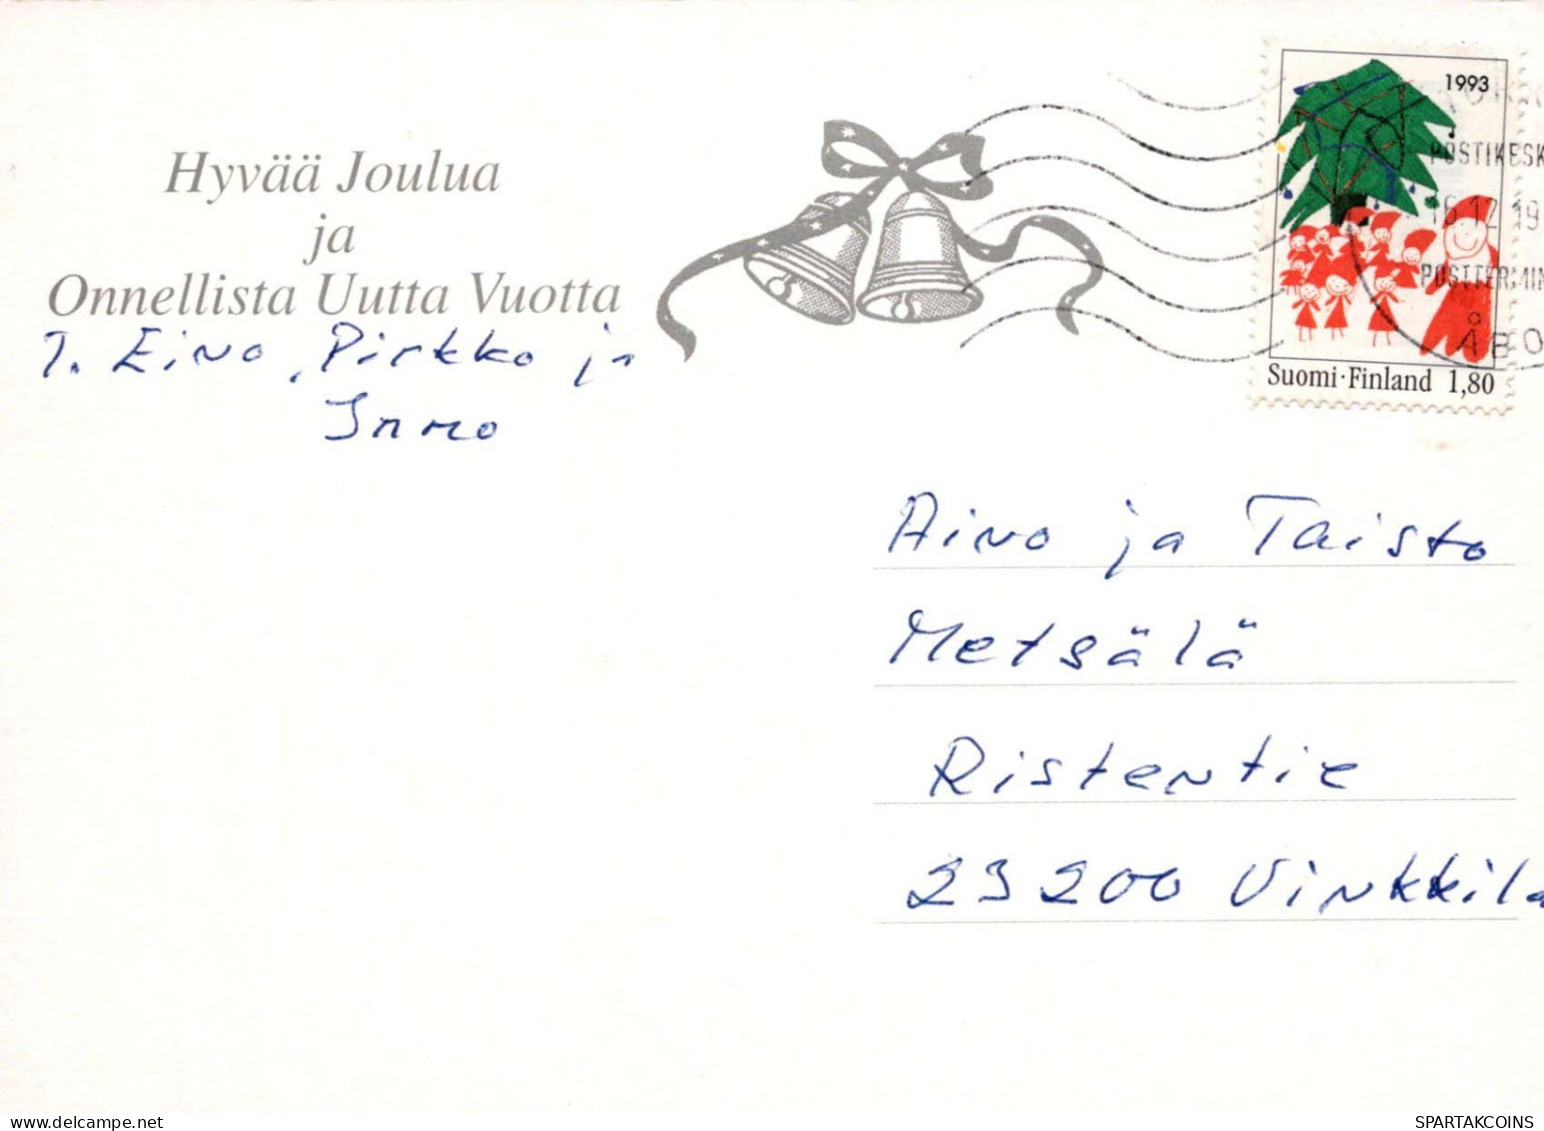 Hyvää Joulua
ja
Onnellista Uutta Vuotta
T. Eino, Pirkko ja
Inmo
1993
POSTIKESK
16.12.19
POSTTERMIN
ÅBO
Suomi·Finland 1,80
Aino ja Taisto
Metsälä
Ristentie
23200 Vinkkila
SPARTAKCOINS